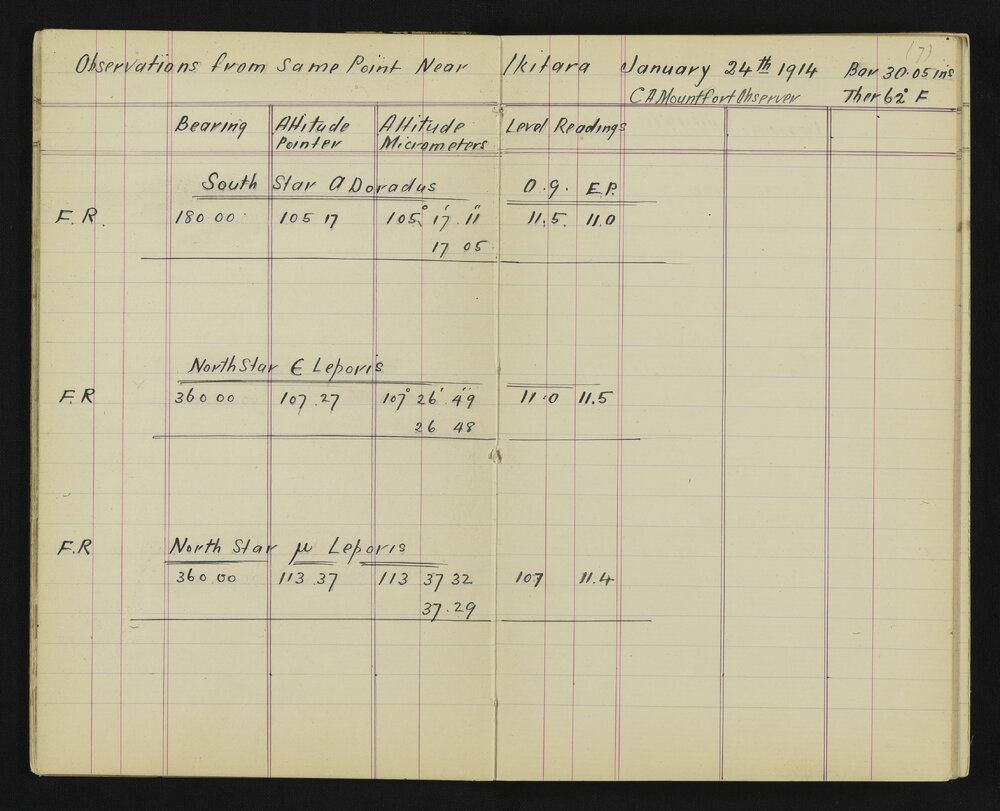 (7)
Observations from Same Point Near Ikitara January 24th 1914 Bar 30.05 ins
C A Mountfort Observer Ther 62° F
Bearing Altitude Pointer Altitude Micrometers Level Readings
South Star α Doradus O.g. E.P.
F.R. 180.00 105 17 105° 17' 11" 11.5. 11.0
17 05
North Star ε Leporis
F.R 360 00 107.27 107° 26' 49" 11.0 11.5
26 48
F.R North Star μ Leporis
360.00 113.37 113 37 32 107 11.4
37.29